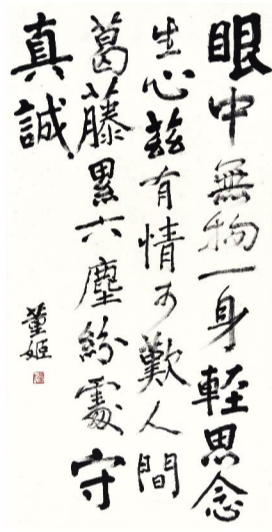 眼中無物一身輕思念
生心茲有情可歎人間
葛藤累六塵紛處守
真誠
董姬